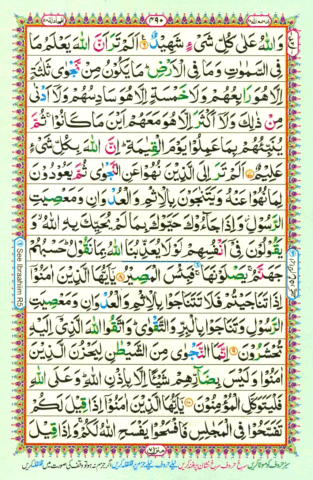 قد سمع الله ٢٨
٤٩٠
المجادلة ٥٨
وَاللّٰهُ عَلٰی كُلِّ شَیْءٍ شَهِیْدٌ اَلَمْ تَرَ اَنَّ اللّٰهَ یَعْلَمُ مَا
فِی السَّمٰوٰتِ وَمَا فِی الْاَرْضِ مَا یَكُوْنُ مِنْ نَّجْوٰی ثَلٰثَةٍ
اِلَّا هُوَ رَابِعُهُمْ وَلَا خَمْسَةٍ اِلَّا هُوَ سَادِسُهُمْ وَلَاۤ اَدْنٰی
مِنْ ذٰلِكَ وَلَاۤ اَكْثَرَ اِلَّا هُوَ مَعَهُمْ اَیْنَ مَا كَانُوْا ثُمَّ
یُنَبِّئُهُمْ بِمَا عَمِلُوْا یَوْمَ الْقِیٰمَةِ اِنَّ اللّٰهَ بِكُلِّ شَیْءٍ
عَلِیْمٌ اَلَمْ تَرَ اِلَی الَّذِیْنَ نُهُوْا عَنِ النَّجْوٰی ثُمَّ یَعُوْدُوْنَ
لِمَا نُهُوْا عَنْهُ وَیَتَنٰجَوْنَ بِالْاِثْمِ وَالْعُدْوَانِ وَمَعْصِیَتِ
الرَّسُوْلِ وَاِذَا جَآءُوْكَ حَیَّوْكَ بِمَا لَمْ یُحَیِّكَ بِهِ اللّٰهُ وَ
یَقُوْلُوْنَ فِیْۤ اَنْفُسِهِمْ لَوْلَا یُعَذِّبُنَا اللّٰهُ بِمَا نَقُوْلُ حَسْبُهُمْ
جَهَنَّمُ یَصْلَوْنَهَا فَبِئْسَ الْمَصِیْرُ یٰۤاَیُّهَا الَّذِیْنَ اٰمَنُوْۤا
اِذَا تَنَاجَیْتُمْ فَلَا تَتَنَاجَوْا بِالْاِثْمِ وَالْعُدْوَانِ وَمَعْصِیَتِ
الرَّسُوْلِ وَتَنَاجَوْا بِالْبِرِّ وَالتَّقْوٰی وَاتَّقُوا اللّٰهَ الَّذِیْۤ اِلَیْهِ
تُحْشَرُوْنَ اِنَّمَا النَّجْوٰی مِنَ الشَّیْطٰنِ لِیَحْزُنَ الَّذِیْنَ
اٰمَنُوْا وَلَیْسَ بِضَآرِّهِمْ شَیْئًا اِلَّا بِاِذْنِ اللّٰهِ وَعَلَی اللّٰهِ
فَلْیَتَوَكَّلِ الْمُؤْمِنُوْنَ یٰۤاَیُّهَا الَّذِیْنَ اٰمَنُوْۤا اِذَا قِیْلَ لَكُمْ
تَفَسَّحُوْا فِی الْمَجٰلِسِ فَافْسَحُوْا یَفْسَحِ اللّٰهُ لَكُمْ وَاِذَا قِیْلَ
See Ibraahim R5
منزل ٧